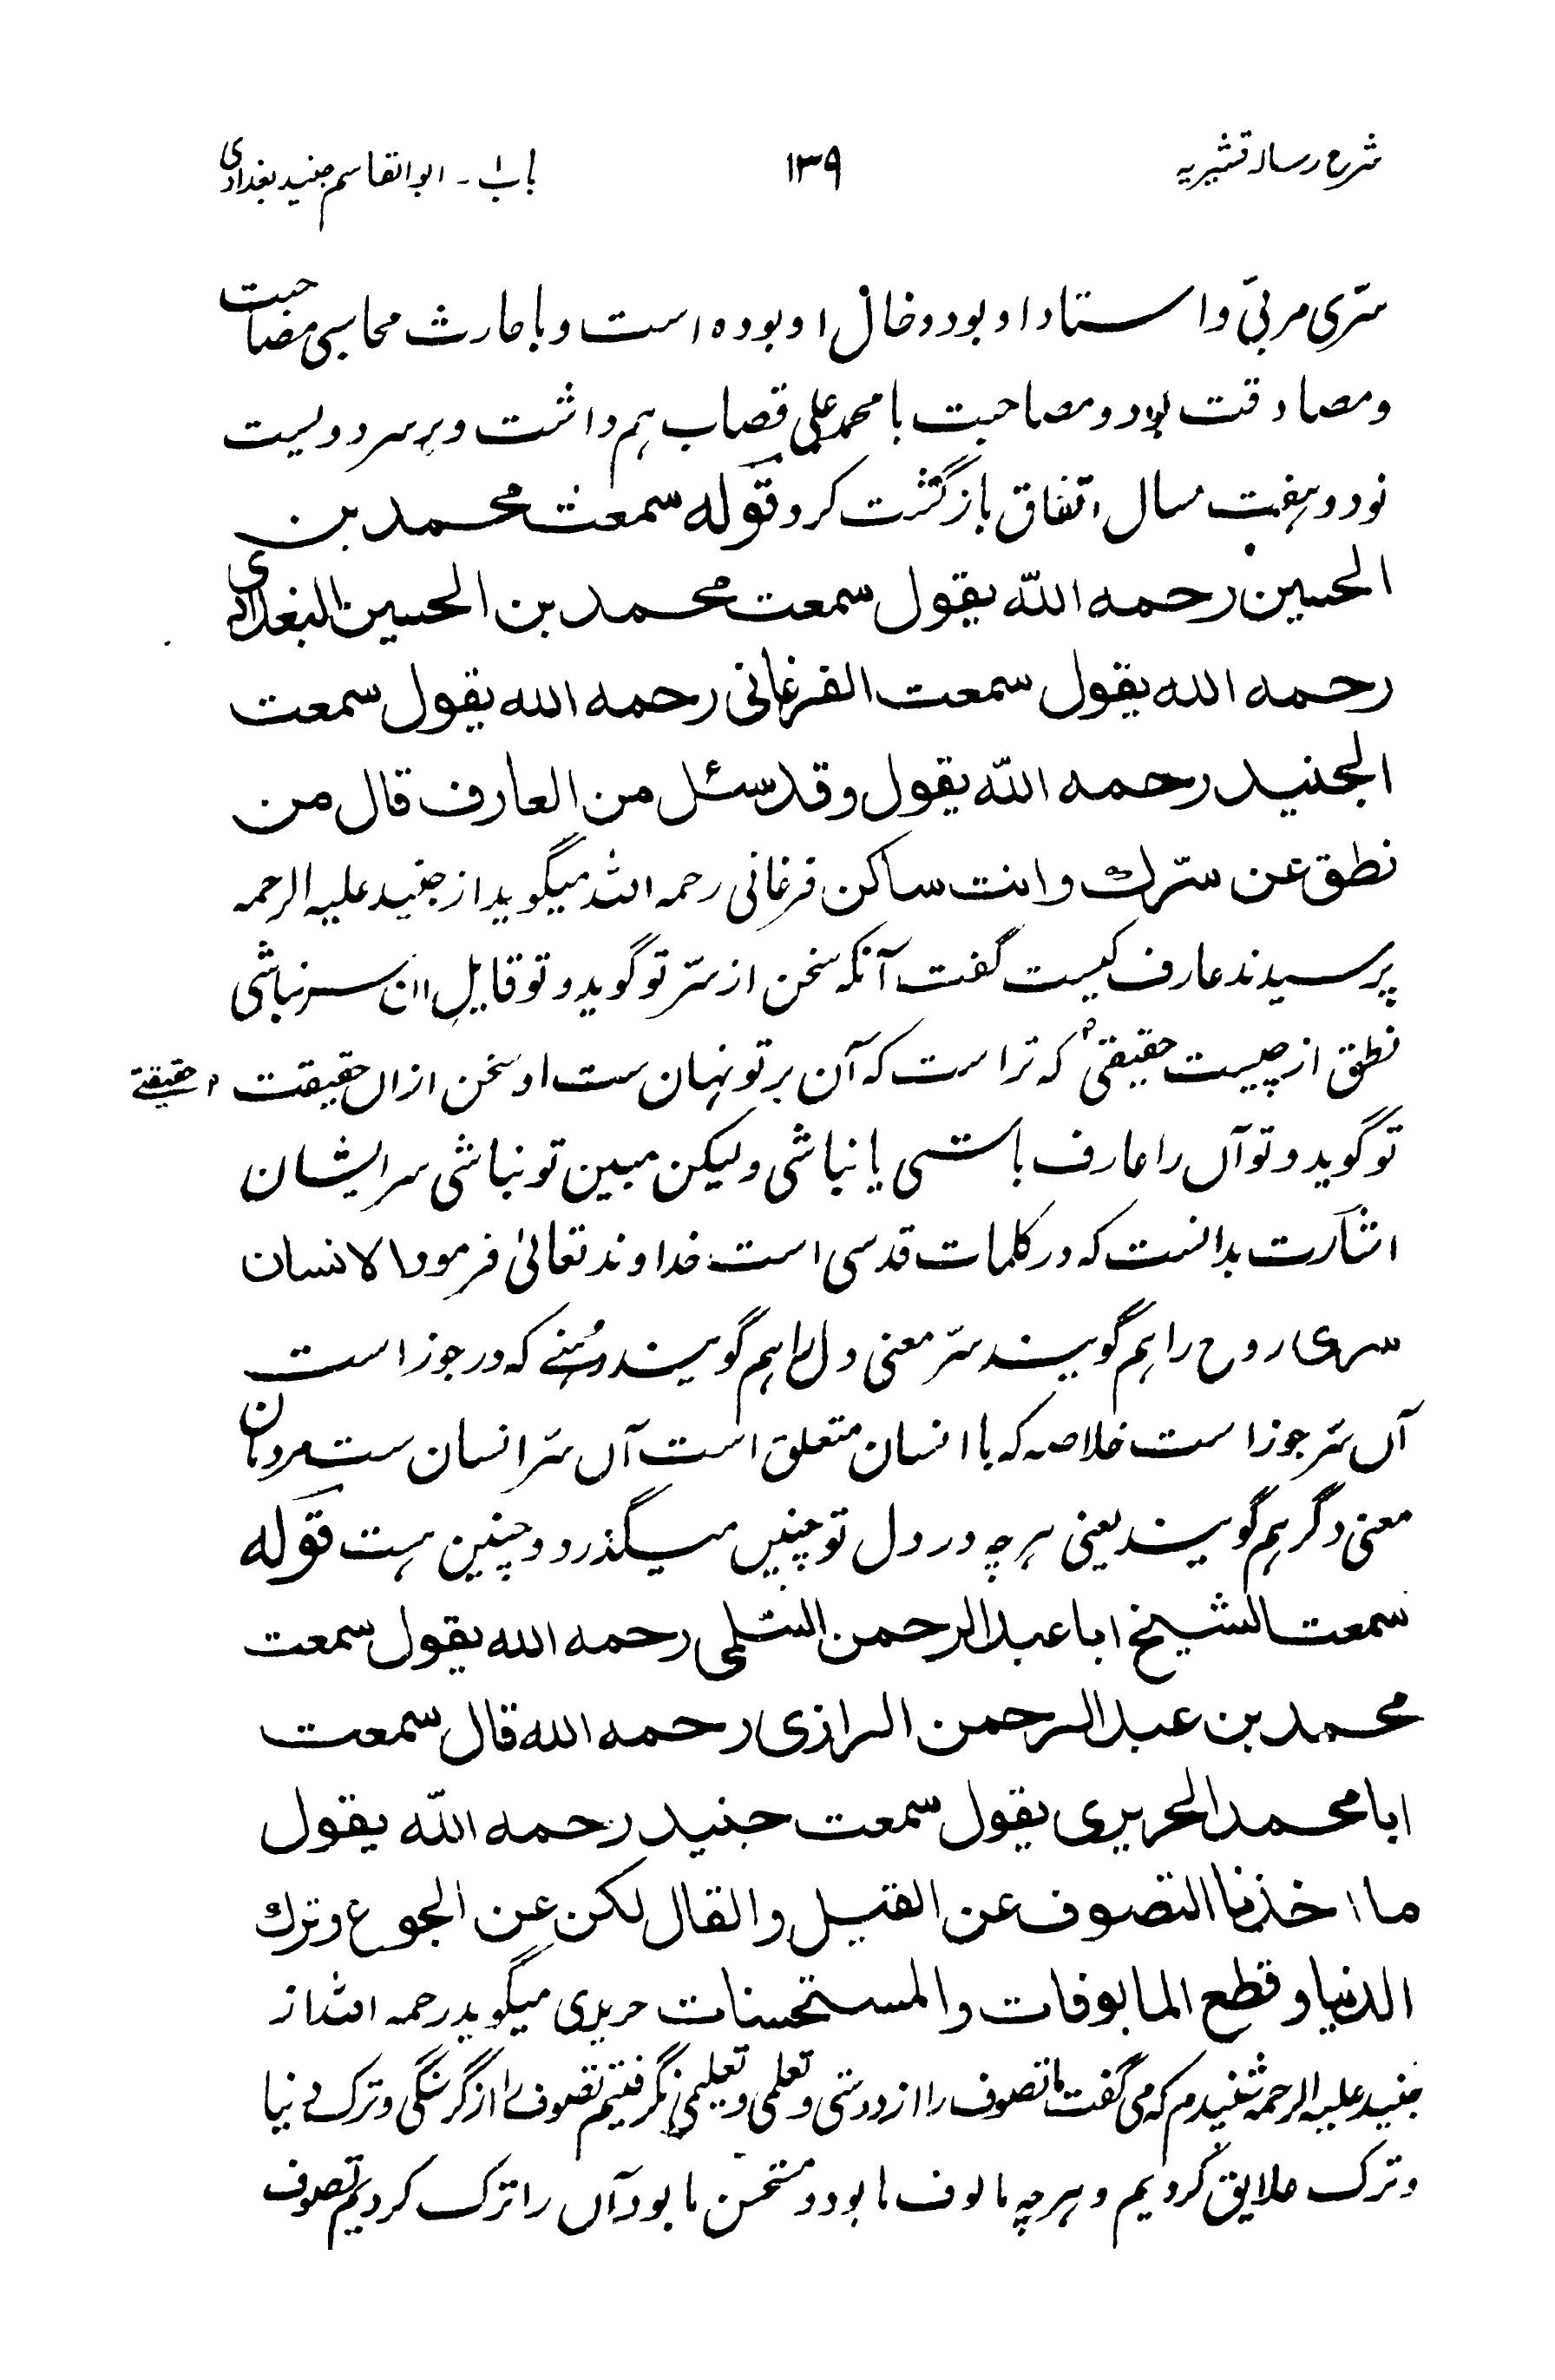 شرح رسالہ قشیریہ ۱۳۹ باب ۱ ـ ابوالقاسم جنید بغدادی
سّری مربیّ و استاد او بود و خال او بوده است و با حارث محاسبی مصاحبت
و مصادقت بود و مصاحبت با محمد علی قصاب ہم داشت و بر سر دویست
نود و ہفت سال اتفاق بازگشت کرد قوله سمعت محمد بن
الحسین رحمه اللّٰه یقول سمعت محمد بن الحسین البغدادی
رحمه الله یقول سمعت الفرغانی رحمه الله یقول سمعت
الجنید رحمه اللّٰه یقول وقد سئل من العارف قال من
نطق عن سّرك وانت ساکن فرغانی رحمہ اللہ میگوید از جنید علیہ الرحمہ
پرسیدند عارف کیست گفت آنکہ سخن از سّر تو گوید و تو قایل اان سر نباشی
نطق از چیست حقیقتی ۲ کہ تراست کہ آن بر تو نہان ست او سخن از ال حقیقت ۲ حقیقتے
تو گوید و تو آں را عارف باشی یا نباشی ولیکن مبین تو نباشی سر ایشان
اشارت بدانست کہ در کلمات قدسی است خداوند تعالیٰ فرمود الانسان
سری روح را ہم گویند سّر معنی دل را ہم گویند دُہنے کہ در جوز است
آں سّر جوز است خلاصہ کہ با انسان متعلق است آں سّر انسان ست مردمان
معنی دگر ہم گویند یعنی ہرچہ در دل تو چنیں میگذرد و چنین ہست قوله
سمعت الشیخ ابا عبد الرحمن السّلمی رحمه الله یقول سمعت
محمد بن عبد الرحمن الرازی رحمه الله قال سمعت
ابا محمد الحریری یقول سمعت جنید رحمه اللّٰه یقول
ما اخذنا التصوف عن القیل والقال لکن عن الجوع وترك
الدنیا وقطع المالوفات والمستحسنات حریری میگوید رحمہ اللہ از
جنید علیہ الرحمہ شنیدم کہ می گفت ما تصوف را از دوستی و تعلمی و تعلیمی نگرفتیم تصوف را از گرسنگی و ترک دنیا
و ترک علایق کردیم و ہرچہ مالوف ما بود و مستحسن ما بود آں را ترک کردیم تصوف